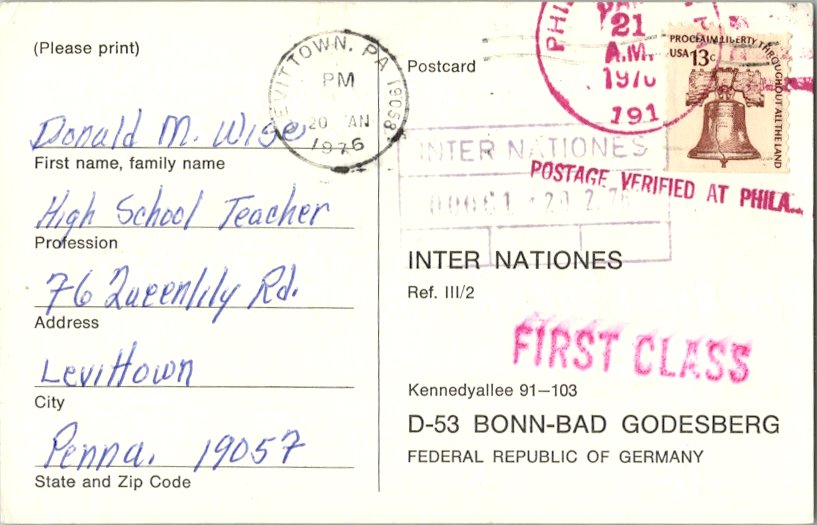 (Please print)
Donald M. Wise
First name, family name
High School Teacher
Profession
76 Queenlily Rd.
Address
Levittown
City
Penna. 19057
State and Zip Code
LEVITTOWN, PA 19058
PM
20 JAN
1976
Postcard
21
A.M.
191
PROCLAIM LIBERTY THROUGHOUT ALL THE LAND
USA 13c
INTER NATIONES
POSTAGE VERIFIED AT PHILA.
INTER NATIONES
Ref. III/2
FIRST CLASS
Kennedyallee 91–103
D-53 BONN-BAD GODESBERG
FEDERAL REPUBLIC OF GERMANY